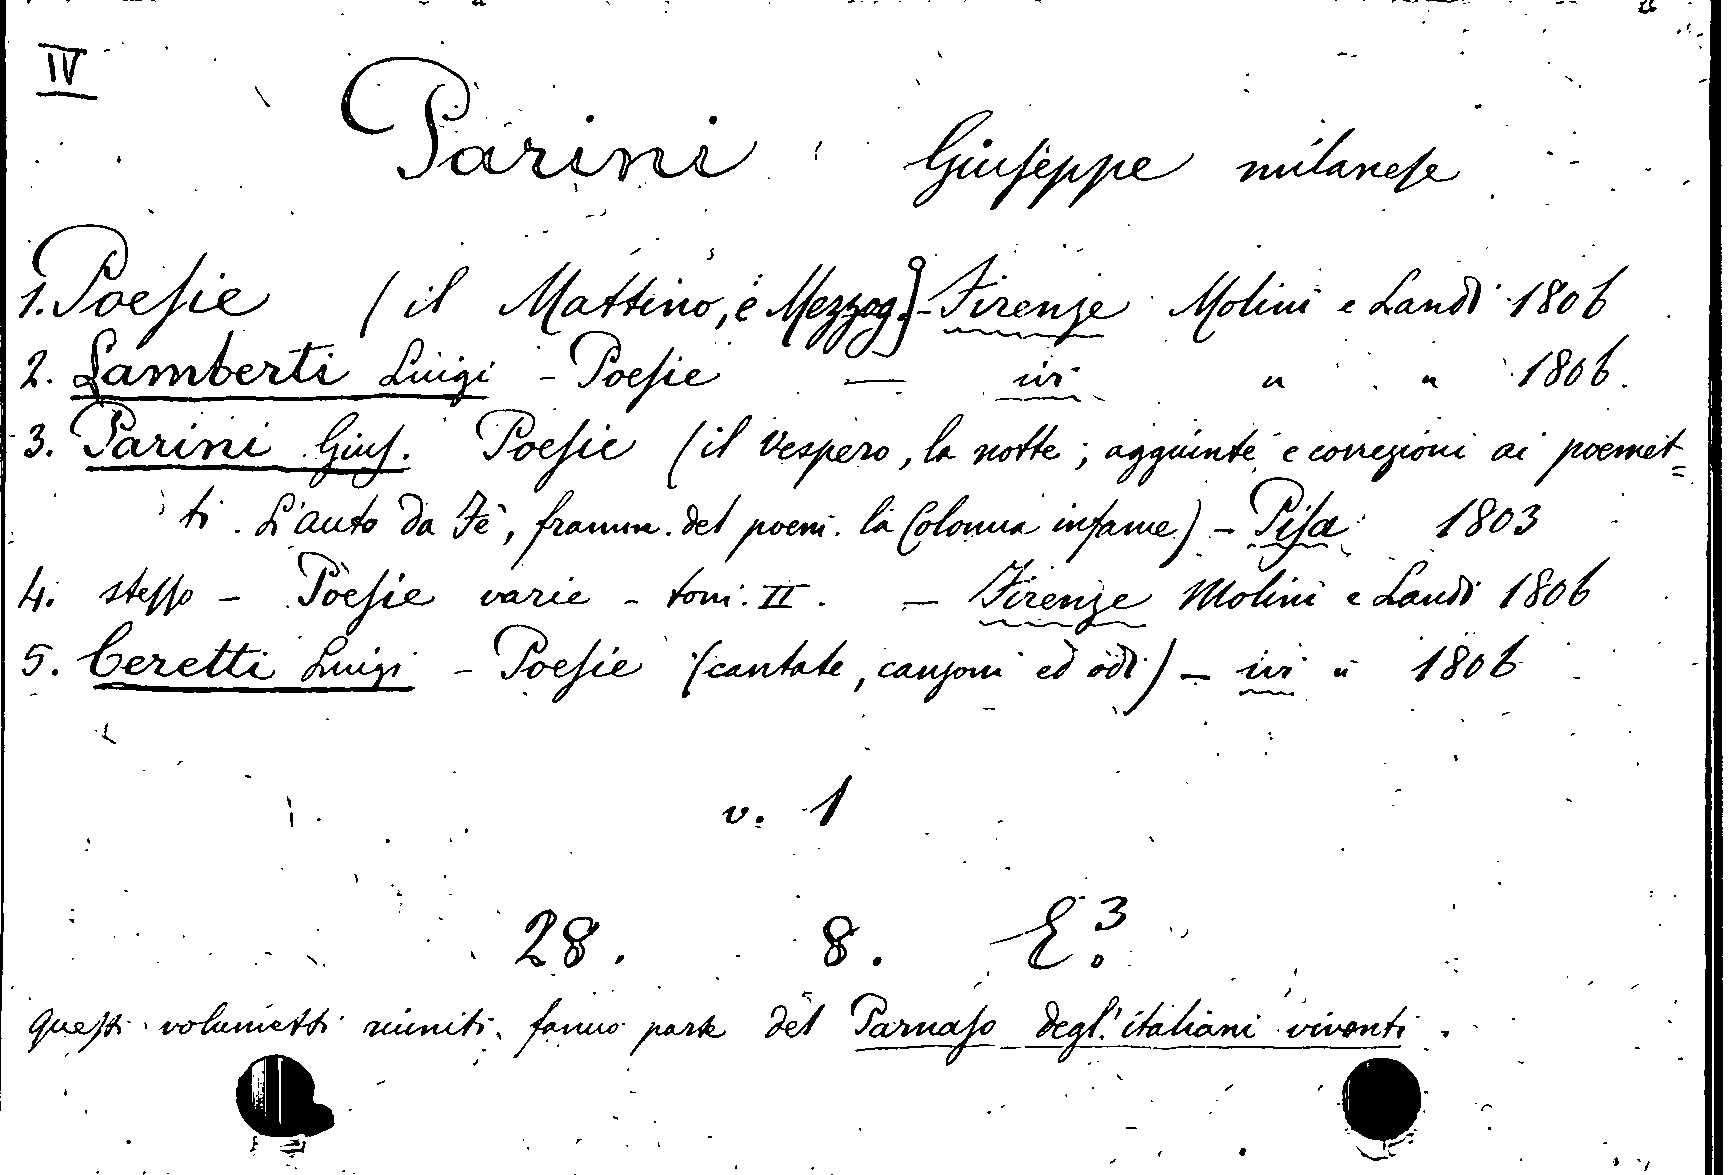 IV
Parini Giuseppe milanese
1. Poesie (il Mattino, e Mezzog.) - Firenze Molini e Landi 1806
2. Lamberti Luigi - Poesie — ivi " " 1806.
3. Parini Gius. Poesie (il Vespero, la notte; aggiunte e correzioni ai poemet=
ti. L'auto da Fè, framm. del poem. la Colonna infame) - Pisa 1803
4. stesso - Poesie varie - tom. II. — Firenze Molini e Landi 1806
5. Ceretti Luigi - Poesie (cantate, canzoni ed odi) - ivi " 1806
v. 1
28. 8. E.3
Questi volumetti riuniti fanno parte del Parnaso degl'italiani viventi.